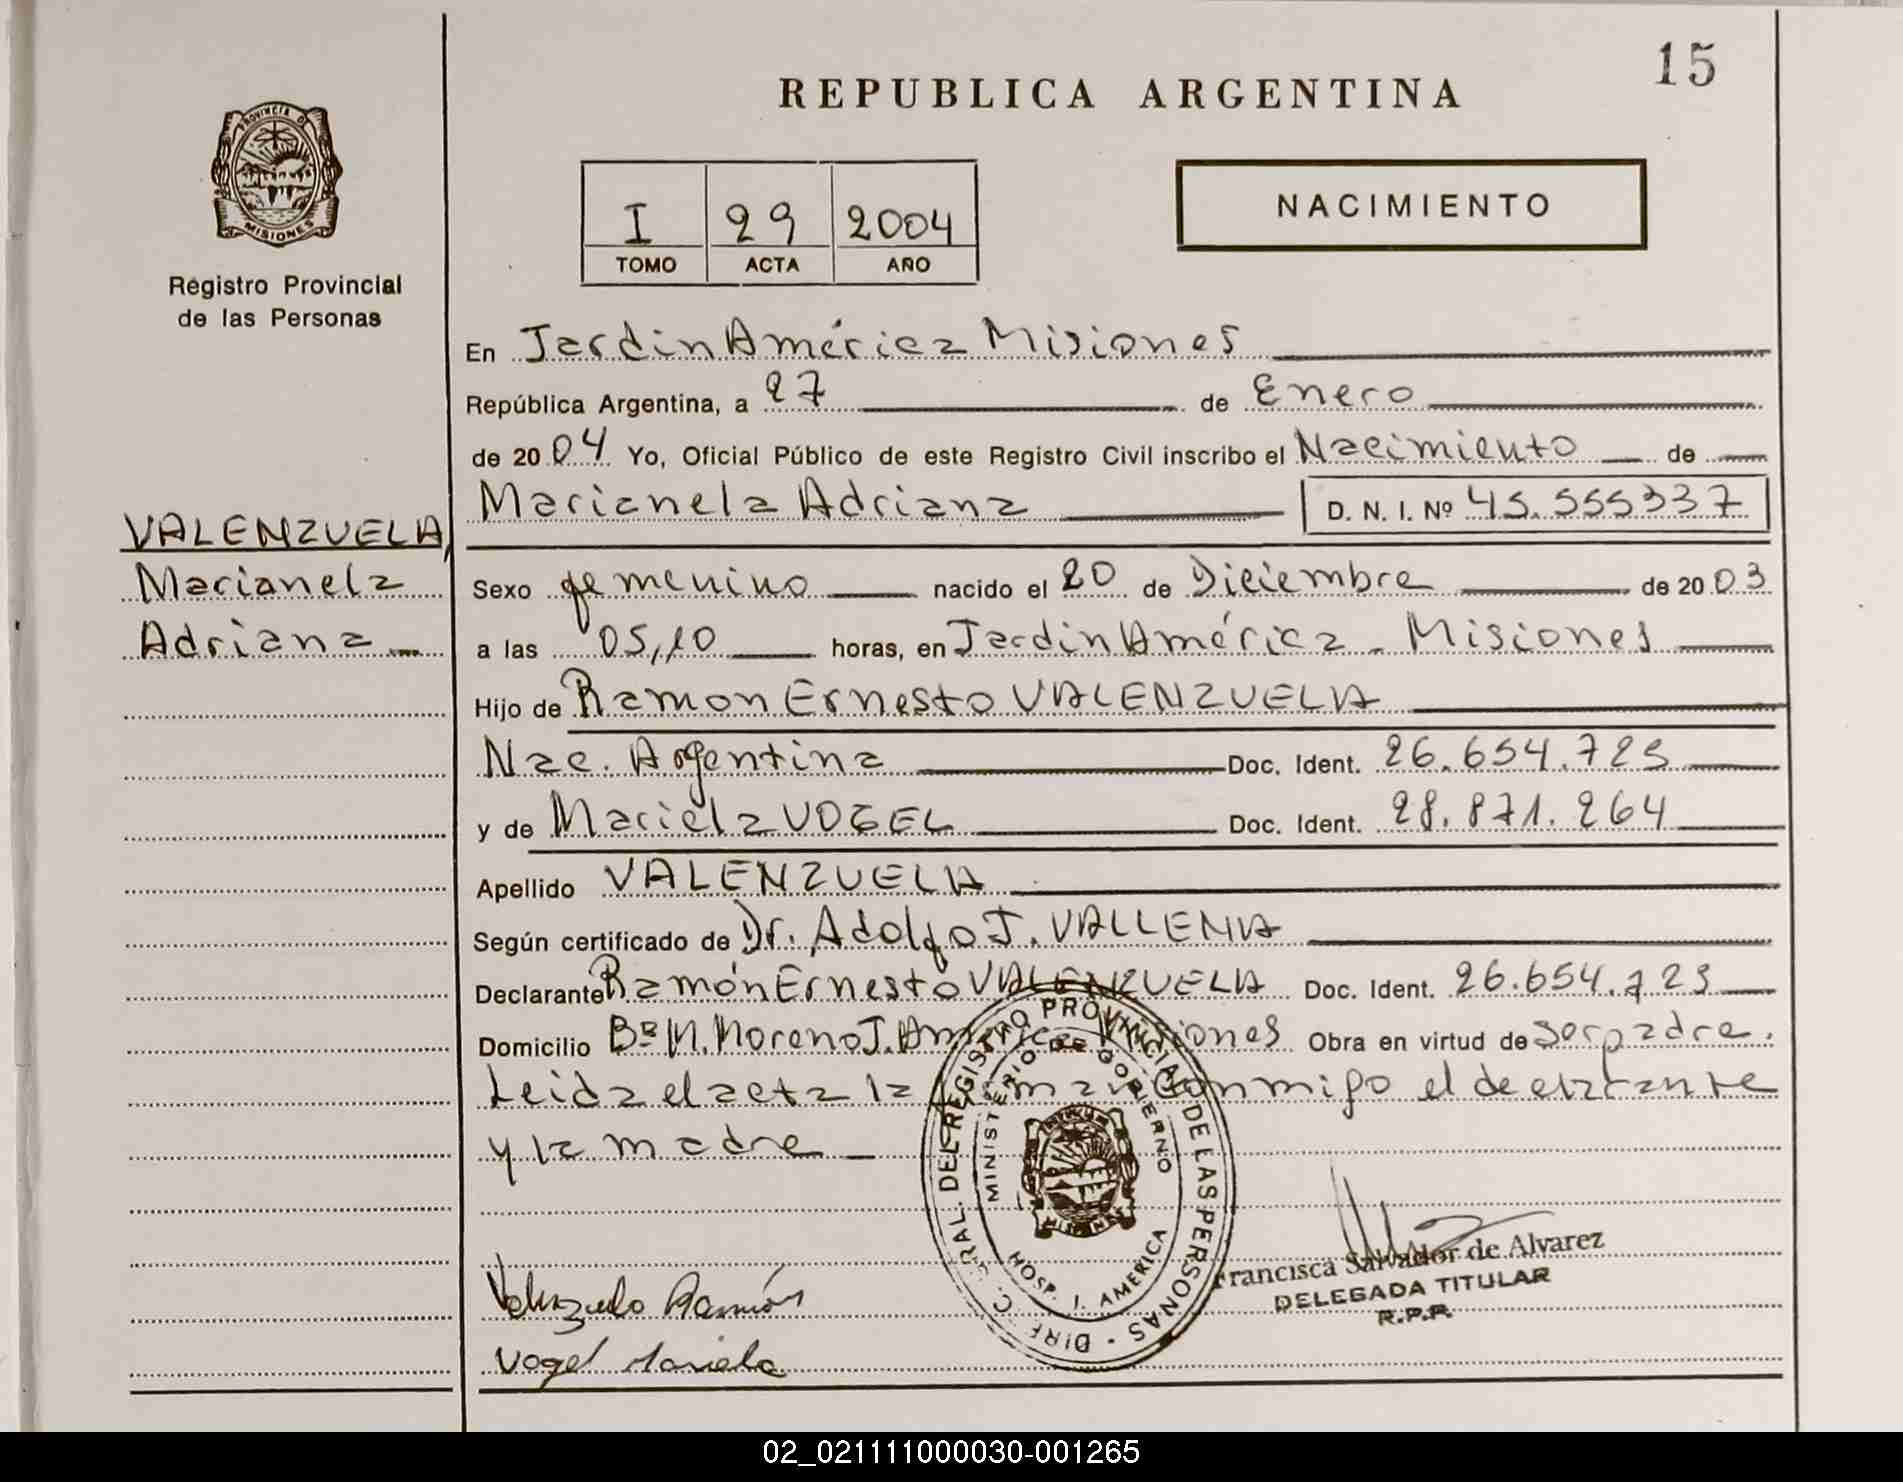 15
REPUBLICA ARGENTINA
PROVINCIA DE
MISIONES
Registro Provincial
de las Personas
I 29 2004
TOMO ACTA AÑO
NACIMIENTO
En Jardin América Misiones
República Argentina, a 27 de Enero
de 2004 Yo, Oficial Público de este Registro Civil inscribo el Nacimiento de
Marianela Adriana D. N. I. Nº 45.555337
VALENZUELA,
Marianela
Adriana
Sexo femenino nacido el 20 de Diciembre de 2003
a las 05,10 horas, en Jardin América - Misiones
Hijo de Ramon Ernesto VALENZUELA
Nac. Argentina Doc. Ident. 26.654.723
y de Mariela VOGEL Doc. Ident. 28.871.264
Apellido VALENZUELA
Según certificado de Dr. Adolfo J. VALLENA
Declarante Ramón Ernesto VALENZUELA Doc. Ident. 26.654.723
Domicilio Bº M. Moreno J. América Misiones Obra en virtud de ser padre.
Leida el acta la firman conmigo el declarante
y la madre
DIREC. GRAL. DEL REGISTRO PROVINCIAL DE LAS PERSONAS -
MINISTERIO DE GOBIERNO
HOSP. J. AMERICA
MISIONES
Francisca Salvador de Alvarez
DELEGADA TITULAR
R.P.P.
Valenzuela Ramón
Vogel Mariela
02_021111000030-001265